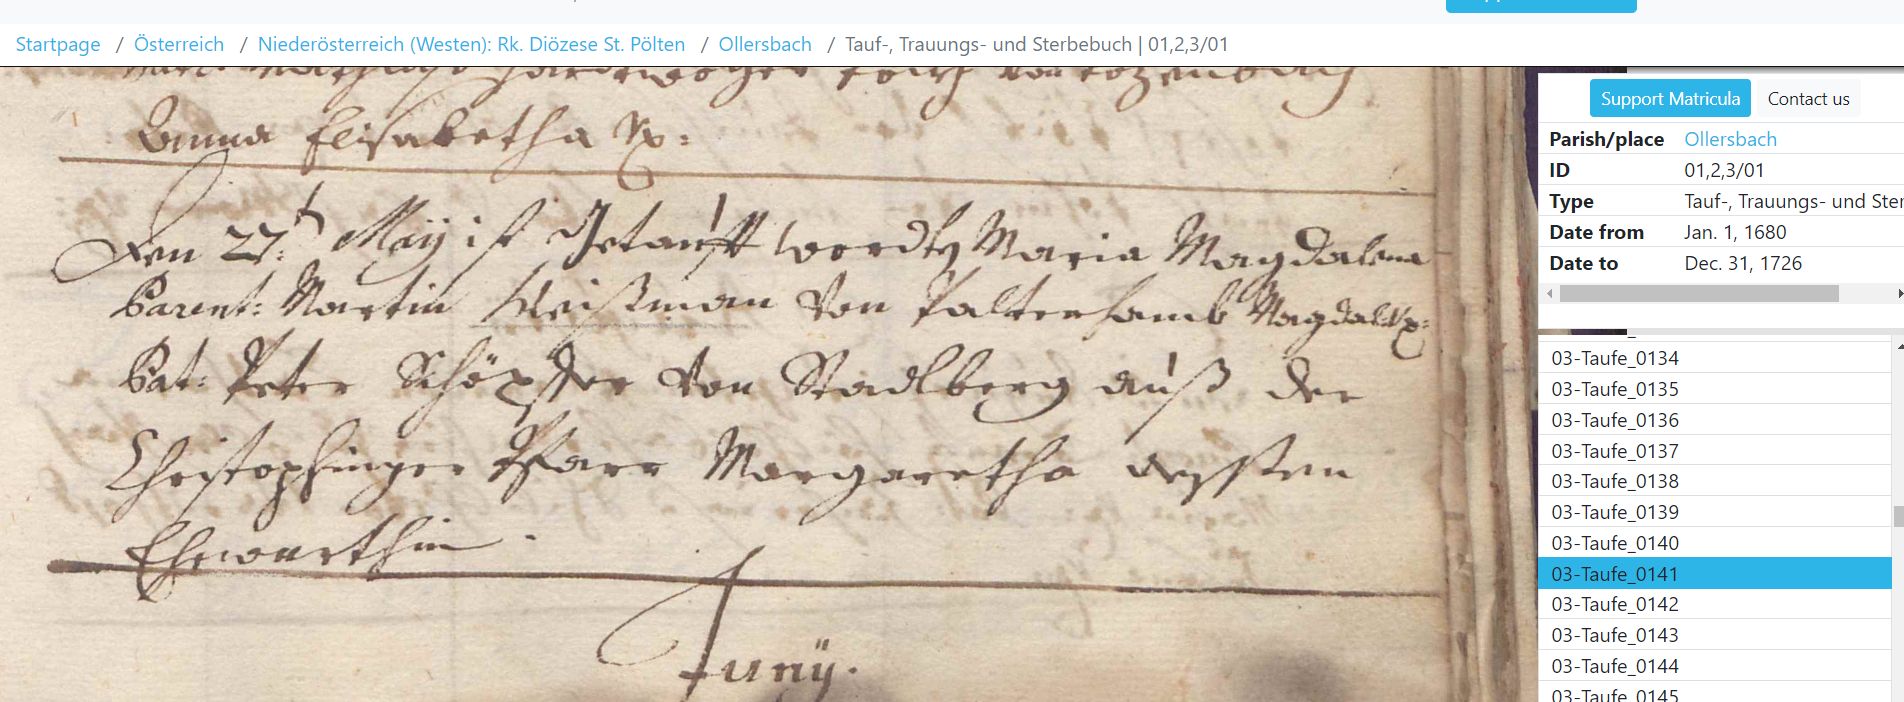 Startpage / Österreich / Niederösterreich (Westen): Rk. Diözese St. Pölten / Ollersbach / Tauf-, Trauungs- und Sterbebuch | 01,2,3/01
Anna Elisabetha Ux:
Den 27.t Maÿ ist Getaufft worden Maria Magdalena
Parent: Martin von Magdal: Ux:
Pat: Peter von Stadlberg auß der
Christophinger Pfarr Margaretha dessen
Ehewürthin.
Junÿ.
Support Matricula Contact us
Parish/place Ollersbach
ID 01,2,3/01
Type Tauf-, Trauungs- und Ster
Date from Jan. 1, 1680
Date to Dec. 31, 1726
03-Taufe_0134
03-Taufe_0135
03-Taufe_0136
03-Taufe_0137
03-Taufe_0138
03-Taufe_0139
03-Taufe_0140
03-Taufe_0141
03-Taufe_0142
03-Taufe_0143
03-Taufe_0144
03-Taufe_0145